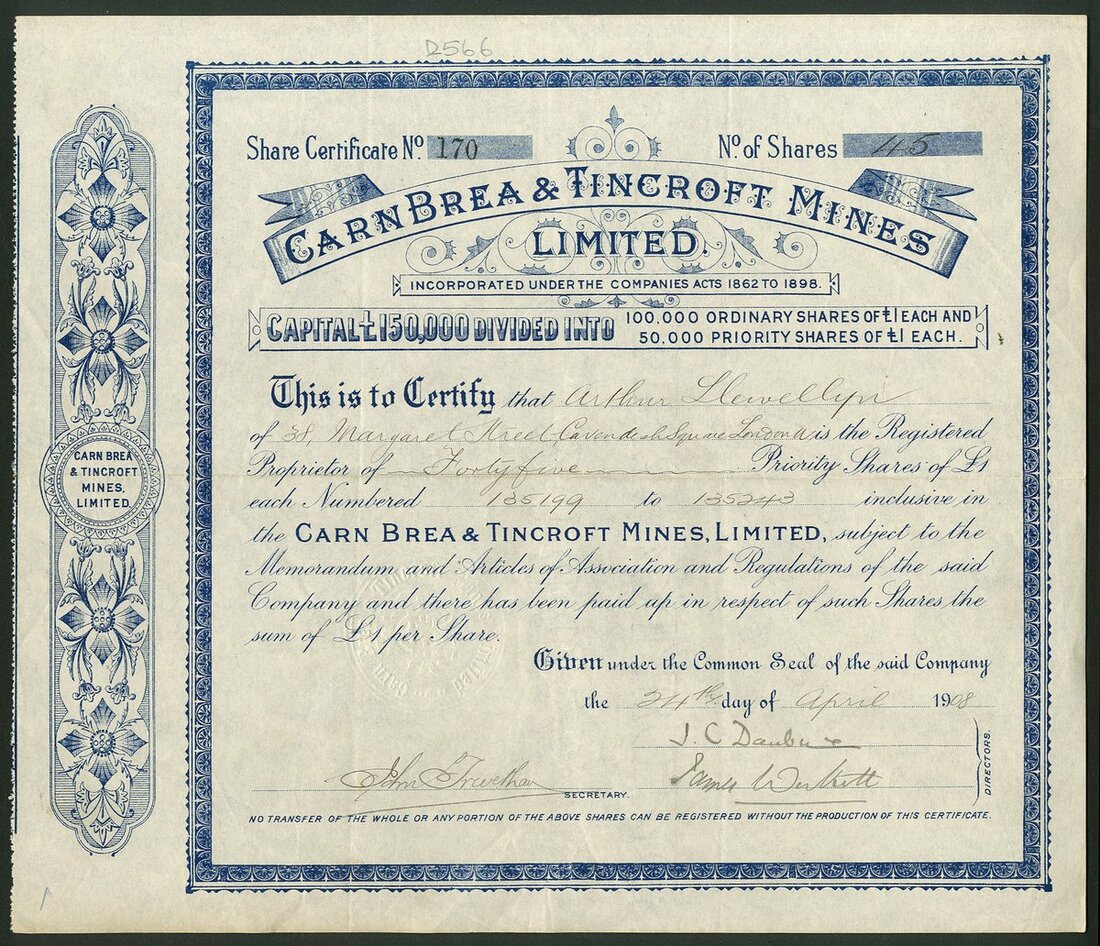 D566
Share Certificate No. 170
No. of Shares 45
CARN BREA & TINCROFT MINES
LIMITED.
INCORPORATED UNDER THE COMPANIES ACTS 1862 TO 1898.
CAPITAL £150,000 DIVIDED INTO
100,000 ORDINARY SHARES OF £1 EACH AND
50,000 PRIORITY SHARES OF £1 EACH.
CARN BREA
& TINCROFT
MINES,
LIMITED.
This is to Certify that Arthur Llewellyn
of 38, Margaret Street, Cavendish Square London is the Registered
Proprietor of Forty five Priority Shares of £1
each Numbered 135199 to 135243 inclusive in
the CARN BREA & TINCROFT MINES, LIMITED, subject to the
Memorandum and Articles of Association and Regulations of the said
Company and there has been paid up in respect of such Shares the
sum of £1 per Share.
Given under the Common Seal of the said Company
the 24th day of April 1908
J. C. Daubuz
John Trevethan
SECRETARY.
James
DIRECTORS.
NO TRANSFER OF THE WHOLE OR ANY PORTION OF THE ABOVE SHARES CAN BE REGISTERED WITHOUT THE PRODUCTION OF THIS CERTIFICATE.